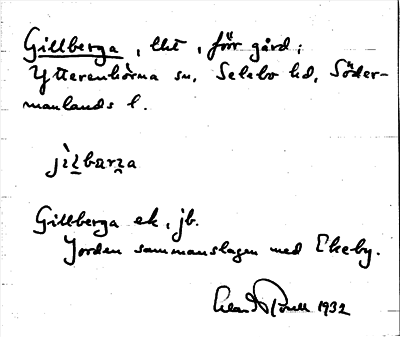 Gillberga, lht, förr gård;
Ytterenhörna sn, Selebo hd, Söder-
manlands l.
jìlbarza
Gillberga ek, jb.
Jorden sammanslagen med Ekeby.
1932